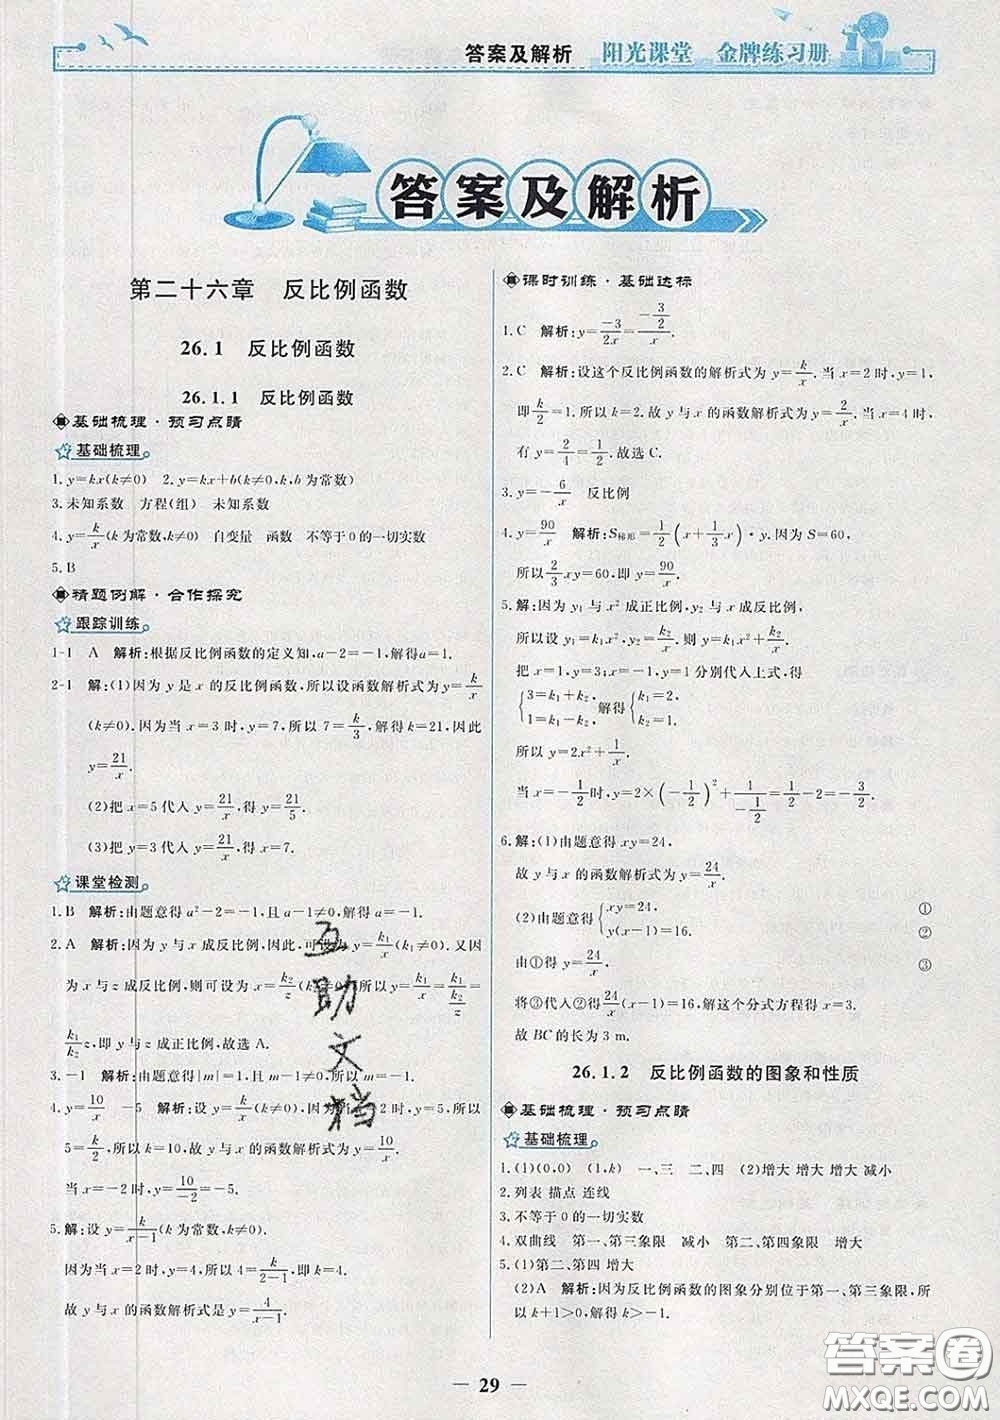 答案及解析 阳光课堂 金牌练习册
答案及解析
第二十六章 反比例函数
26.1 反比例函数
26.1.1 反比例函数
基础梳理·预习点睛
基础梳理
1.y=kx(k≠0) 2.y=kx+b(k≠0,k,b为常数)
3.未知系数 方程(组) 未知系数
4.y=k/x(k为常数,k≠0) 自变量 函数 不等于0的一切实数
5.B
精题例解·合作探究
跟踪训练
1-1 A 解析:根据反比例函数的定义知,a-2=-1,解得a=1.
2-1 解:(1)因为y是x的反比例函数,所以设函数解析式为y=k/x
(k≠0).因为当x=3时,y=7,所以7=k/3,解得k=21,因此
y=21/x.
(2)把x=5代入y=21/x,得y=21/5.
(3)把y=3代入y=21/x,得x=7.
课堂检测
1.B 解析:由题意得a²-2=-1,且a-1≠0,解得a=-1.
2.A 解析:因为y与x成反比例,因此,可设为y=k₁/x(k₁≠0).又因
为x与z成反比例,则可设为x=k₂/z(k₂≠0),所以y=k₁/x=k₁/(k₂/z)=
k₁/k₂ z,即y与z成正比例,故选A.
3.-1 解析:由题意得|m|=1,且m-1≠0,解得m=-1.
4.y=10/x -5 解析:设y=k/x(k≠0),因为当x=2时,y=5,所以
5=k/2,所以k=10,所以y与x的函数解析式为y=10/x.
当x=-2时,y=10/-2=-5.
5.解:设y=k/x-1(k为常数,k≠0).
因为当x=2时,y=4,所以4=k/2-1,即k=4.
故y与x的函数解析式是y=4/x-1.
课时训练·基础达标
1.C 解析:y=-3/2x=(-3/2)/x.
2.C 解析:设这个反比例函数的解析式为y=k/x.当x=2时,y=1,
即k/2=1.所以k=2.故y与x的函数解析式为y=2/x.当x=4时,
有y=2/4=1/2.故选C.
3.y=-6/x 反比例
4.y=90/x 解析:S梯形=1/2(x+1/3x)·y.因为S=60,
所以2/3xy=60,即y=90/x.
5.解:因为y₁与x²成正比例,y₂与x成反比例,
所以设y₁=k₁x²,y₂=k₂/x.则y=k₁x²+k₂/x.
把x=1,y=3;x=-1,y=1分别代入上式,得
{3=k₁+k₂,1=k₁-k₂.解得{k₁=2,k₂=1.
所以y=2x²+1/x.
当x=-1/2时,y=2×(-1/2)²+1/(-1/2)=1/2-2=-3/2.
6.解:(1)由题意得xy=24,
故y与x的函数解析式为y=24/x.
(2)由题意得{xy=24, ①
y(x-1)=16. ②
由①得y=24/x. ③
将③代入②得24/x(x-1)=16,解这个分式方程得x=3.
故BC的长为3 m.
26.1.2 反比例函数的图象和性质
基础梳理·预习点睛
基础梳理
1.(1)(0,0) (1,k) 一、三 二、四 (2)增大 增大 增大 减小
2.列表 描点 连线
3.不等于0的一切实数
4.双曲线 第一、第三象限 减小 第二、第四象限 增大
5.(1)第二、第四 增大
(2)A 解析:因为反比例函数的图象分别位于第一、第三象限,所
以k+1>0,解得k>-1.
29
互助文档
答案圈
MXQE.COM